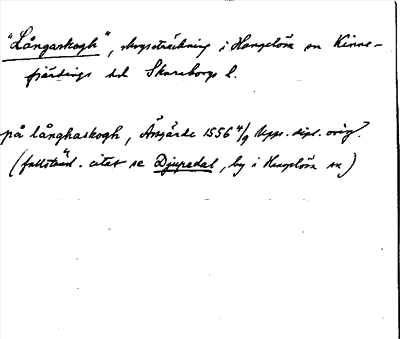 "Långaskogh", skogssträckning i Hangelösa sn Kinne-
fjärdings hd Skaraborgs l.
på långhaskogh, Årsjärde 1556 4/9 Upps. dipl. orig.
(fullständ. citat se Djupedal, by i Hangelösa sn)